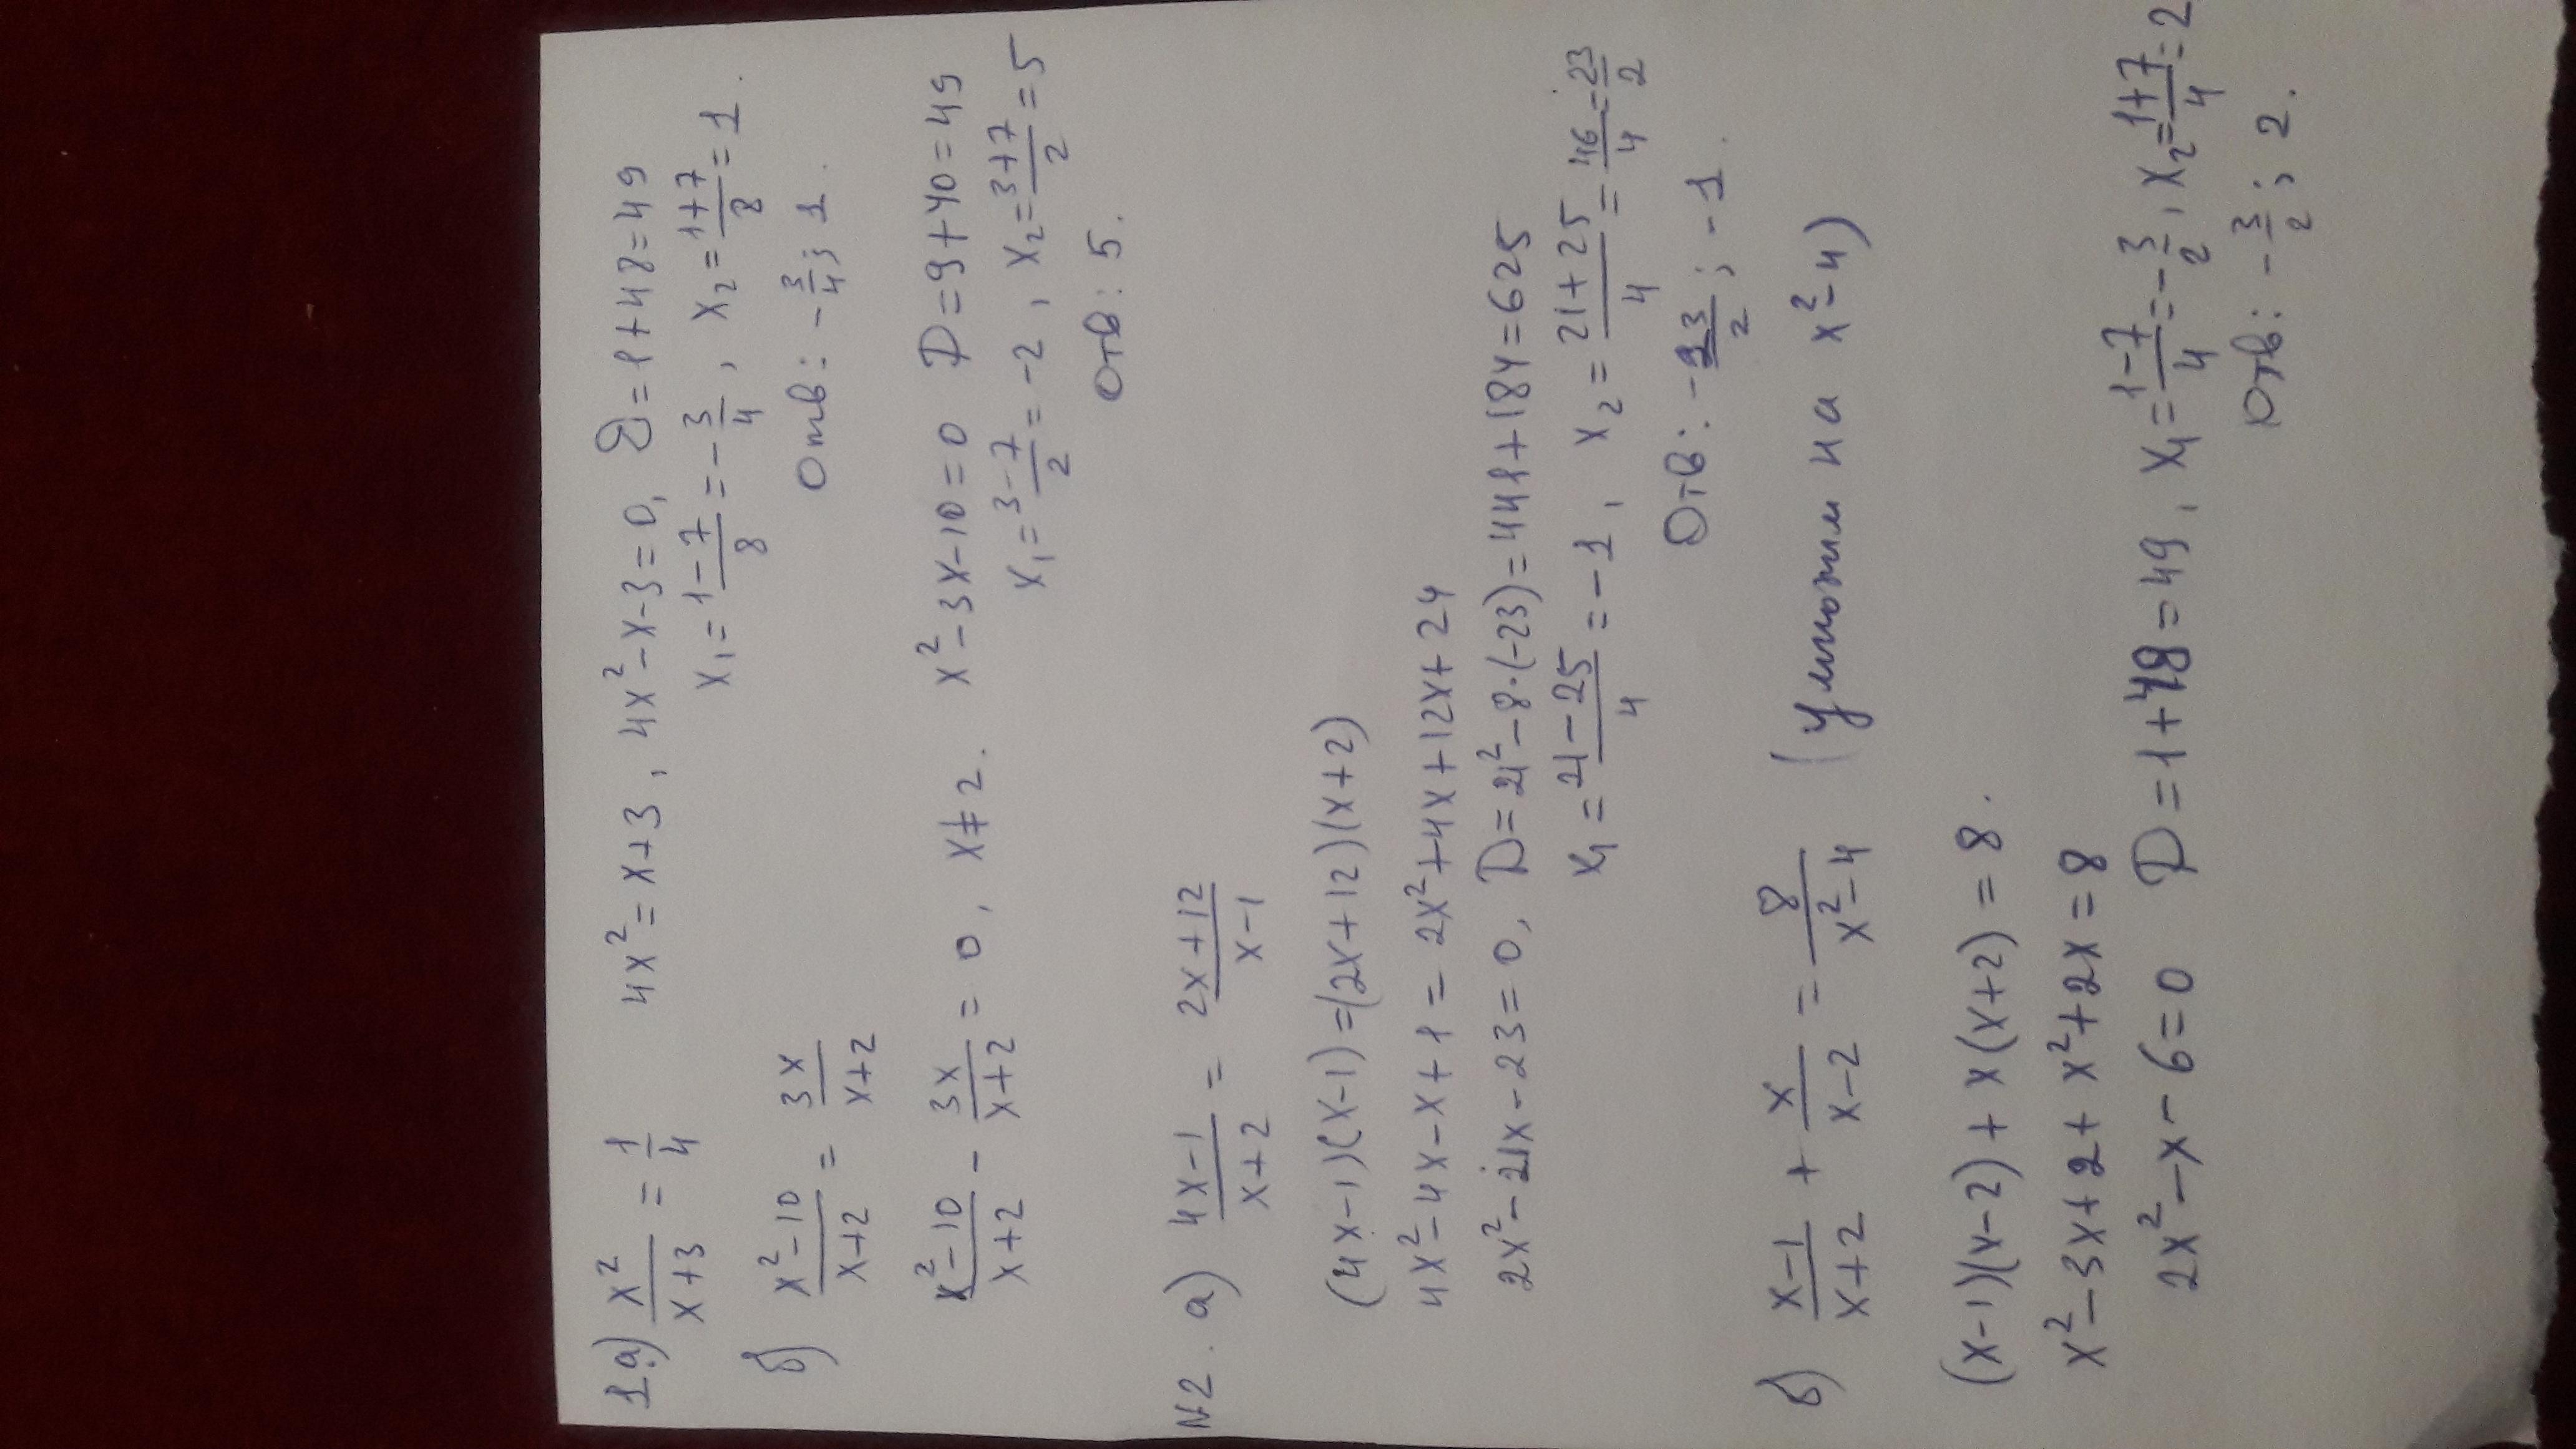 1.а) x²/(x+3) = 1/4   4x² = x+3, 4x²-x-3=0, D=1+48=49
x₁ = (1-7)/8 = -3/4, x₂ = (1+7)/8 = 1.
Отв: -3/4; 1.
б) (x²-10)/(x+2) = 3x/(x+2)
(x²-10)/(x+2) - 3x/(x+2) = 0, x≠2.   x²-3x-10=0   D=9+40=49
x₁ = (3-7)/2 = -2, x₂ = (3+7)/2 = 5
Отв: 5.
№2. а) (4x-1)/(x+2) = (2x+12)/(x-1)
(4x-1)(x-1)=(2x+12)(x+2)
4x²-4x-x+1 = 2x²+4x+12x+24
2x²-21x-23=0, D=21²-8·(-23)=441+184=625
x₁ = (21-25)/4 = -1, x₂ = (21+25)/4 = 46/4 = 23/2
Отв: -23/2; -1.
б) (x-1)/(x+2) + x/(x-2) = 8/(x²-4)   (умножим на x²-4)
(x-1)(x-2)+x(x+2)=8.
x²-3x+2+x²+2x=8
2x²-x-6=0   D=1+48=49, x₁ = (1-7)/4 = -3/2, x₂ = (1+7)/4 = 2
Отв: -3/2; 2.